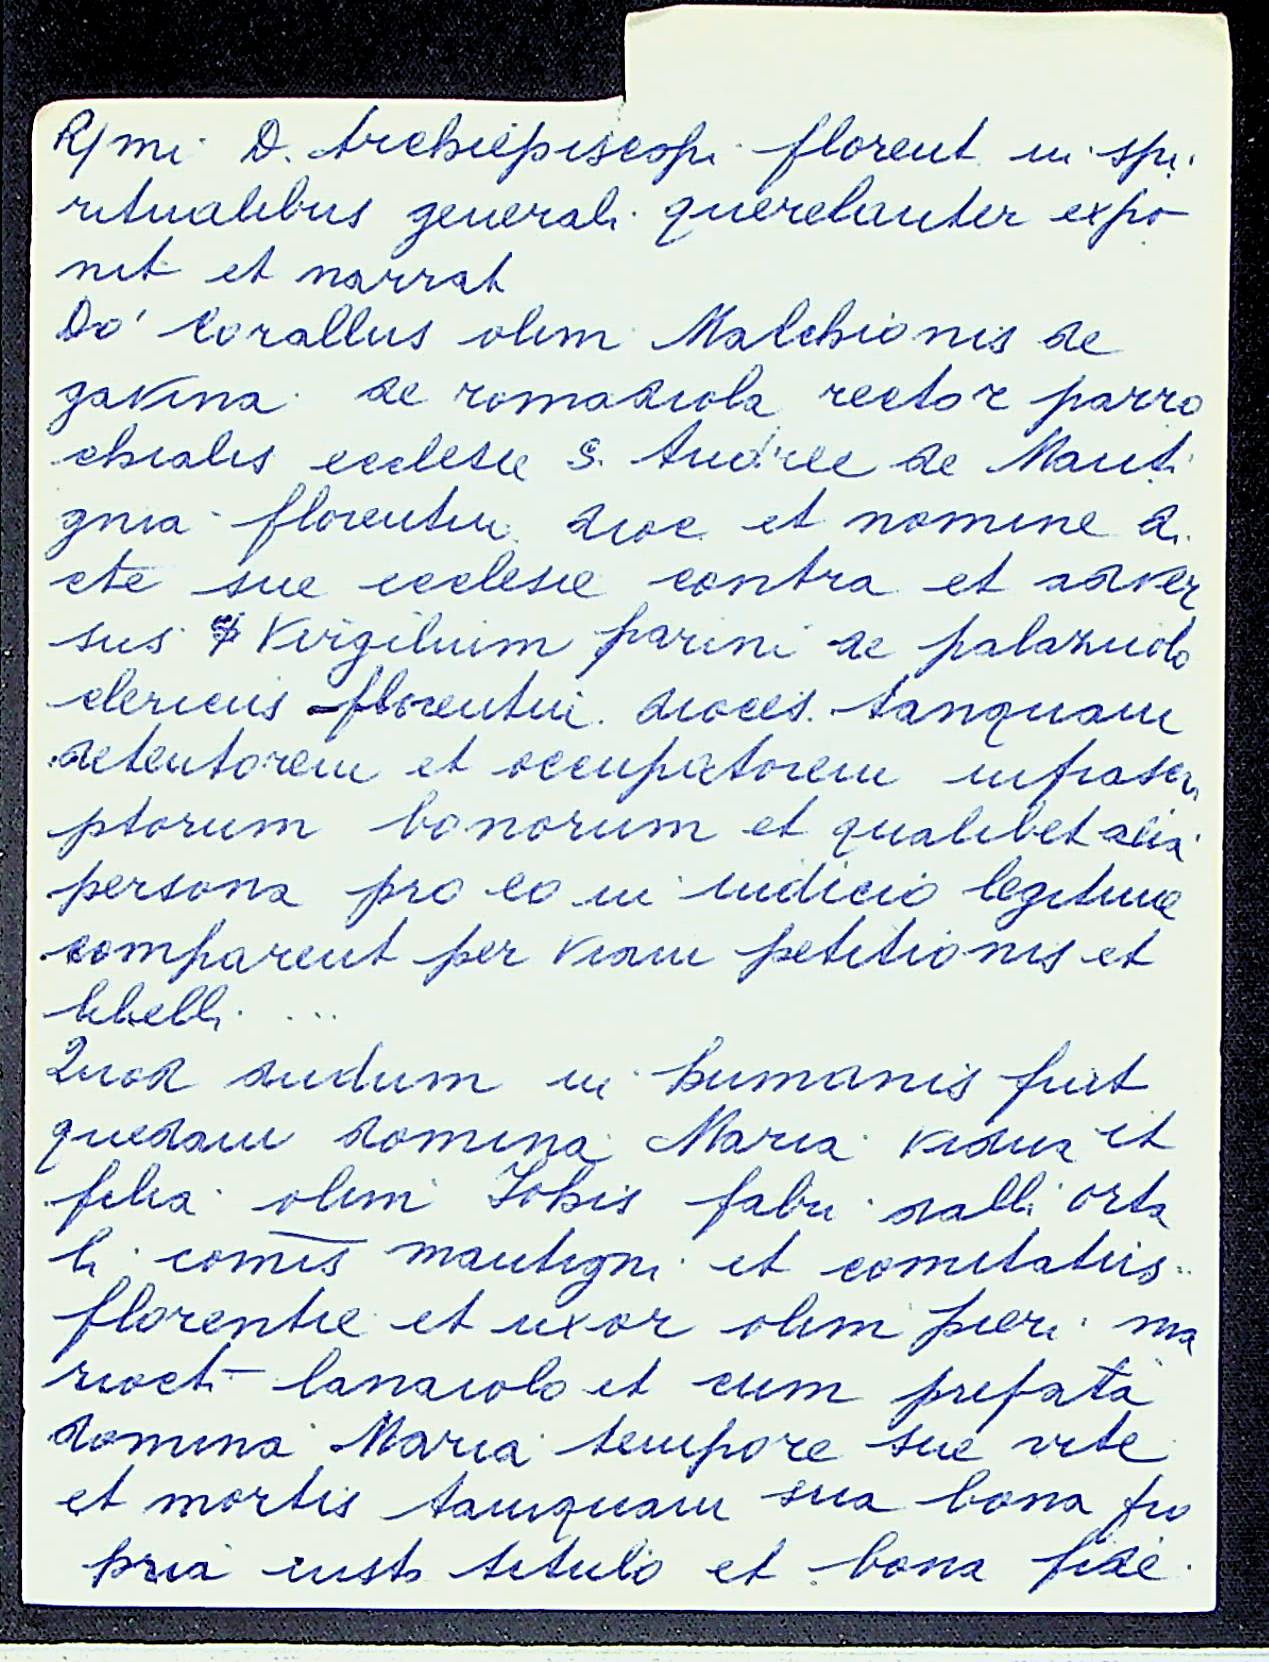 R/mi D. Archiepiscopi florent in spi
ritualibus generali querelanter expo
nit et narrat
Do' Corallus olim Malchionis de
gavina de romadiola rector parro
chialis ecclesie S. Andree de Manti
gnia florentin. dioc. et nomine di
cte sue ecclesie contra et adver
sus Virgilium parini de palazuolo
clericus florentin. dioces. tanquam
detentorem et occupatorem infrascri
ptorum bonorum et qualibet alia
persona pro eo in iudicio legitime
comparent per viam petitionis et
libelli ...
Quod dudum in humanis fuit
quedam domina Maria vidua et
filia olim Johis fabri dalli orta
li comis mantigni et comitatus
florentie et uxor olim pieri ma
riocti lanaiolo et cum prefata
domina Maria tempore sue vite
et mortis tamquam sua bona pro
pria iusto titulo et bona fide.